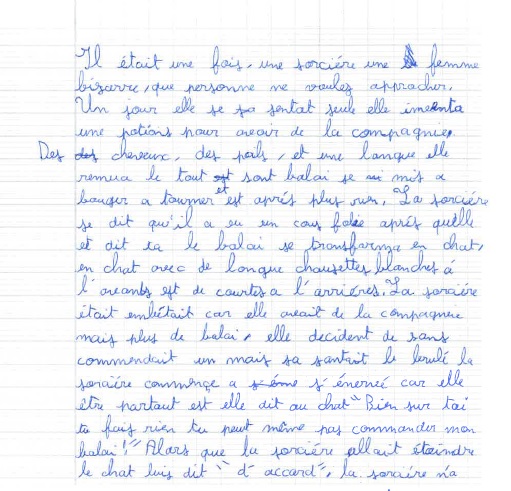 Il était une fois, une sorciére une femme
bizarre, que personne ne voulez approcher,
Un jour elle se sentat seule elle inventa
une potions pour avoir de la compagnie,
Des cheveux, des poils, et une langue elle
remua le tout et sont balai se mis a
bouger a tourner est aprés plus rien, La sorciére
se dit qu'il a eu un cous foie aprés quélle
et dit sa le balai se transforma en chat,
en chat avec de longue chausettes blanches á
l'avants est de courtes a l'arriéres. La sorciére
était embêtait car elle avait de la compagnie
mais plus de balai, elle decident de sans
commendait un mais sa santait le brulé la
sorciére commençe a s'énerveé car elle
etre partout est elle dit au chat "Bien sur toi
to fais rien tu peut même pas commander mon
balai!" Alors que la sorciére allait éteindre
le chat luis dit "d'accard", la sorciére n'a